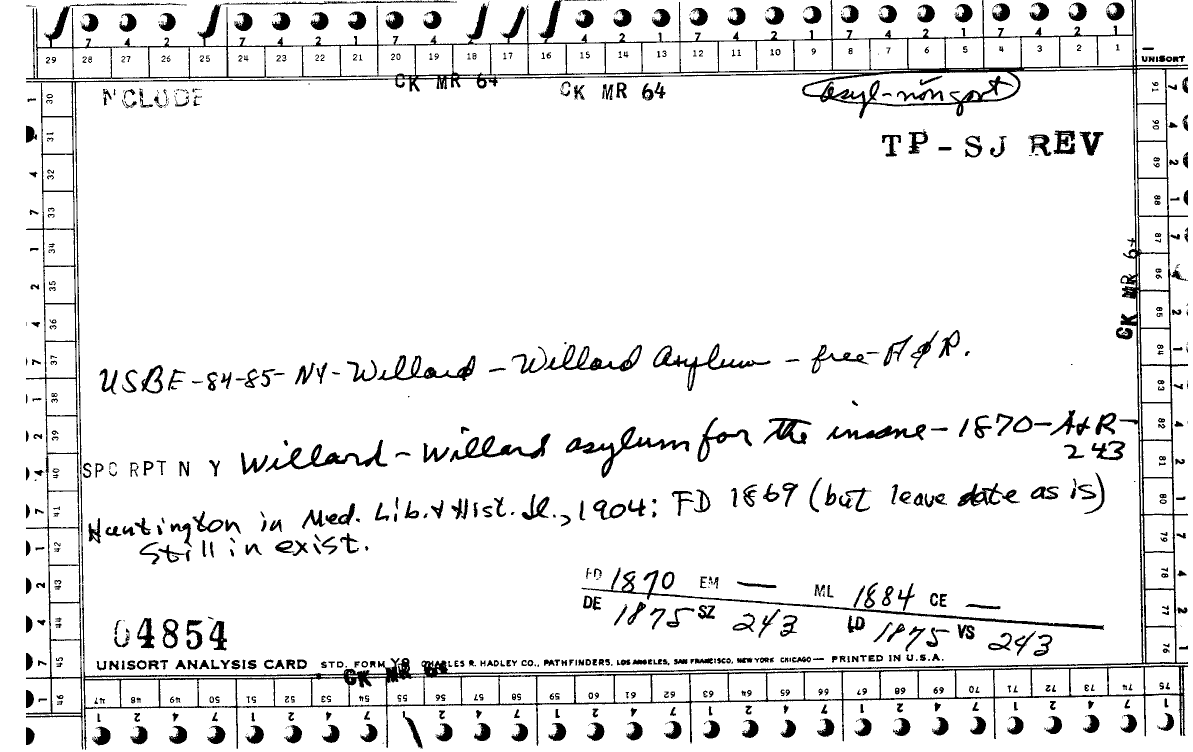 7 4 2 7 4 2 1 7 4 7 4 2 1 7 4 2 1 7 4 2 1
29 28 27 26 25 24 23 22 21 20 19 18 17 16 15 14 13 12 11 10 9 8 7 6 5 4 3 2 1
UNISORT
CK MR 64 CK MR 64
NCLUDE
TP-SJ REV
CK MR 64
USBE-84-85-NY-Willard-Willard Asylum-free-A&R.
SPC RPT N Y Willard-Willard asylum for the insane-1870-A&R-
243
Huntington in Med. Lib. & Hist. Jl., 1904: FD 1869 (but leave date as is)
Still in exist.
FD 1870 EM — ML 1884 CE —
DE 1875 SZ 243 LD 1875 VS 243
04854
UNISORT ANALYSIS CARD STD. FORM Y9 CHARLES R. HADLEY CO., PATHFINDERS, LOS ANGELES, SAN FRANCISCO, NEW YORK CHICAGO — PRINTED IN U.S.A.
CK MR 64
30 31 32 33 34 35 36 37 38 39 40 41 42 43 44 45 46
47 48 49 50 51 52 53 54 55 56 57 58 59 60 61 62 63 64 65 66 67 68 69 70 71 72 73 74 75
76 77 78 79 80 81 82 83 84 85 86 87 88 89 90 91